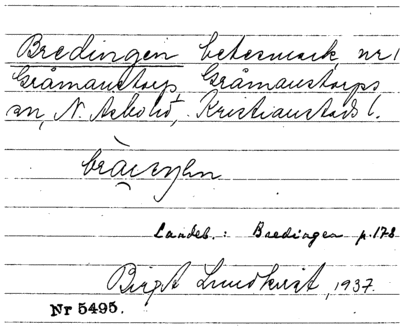 Bredingen betesmark, nr 1
Gråmanstorp, Gråmanstorps
sn, N. Åsbo hd, Kristianstads l.
Landeb.: Bredingen p. 178
Birgit Lundkvist, 1937.
Nr 5495.